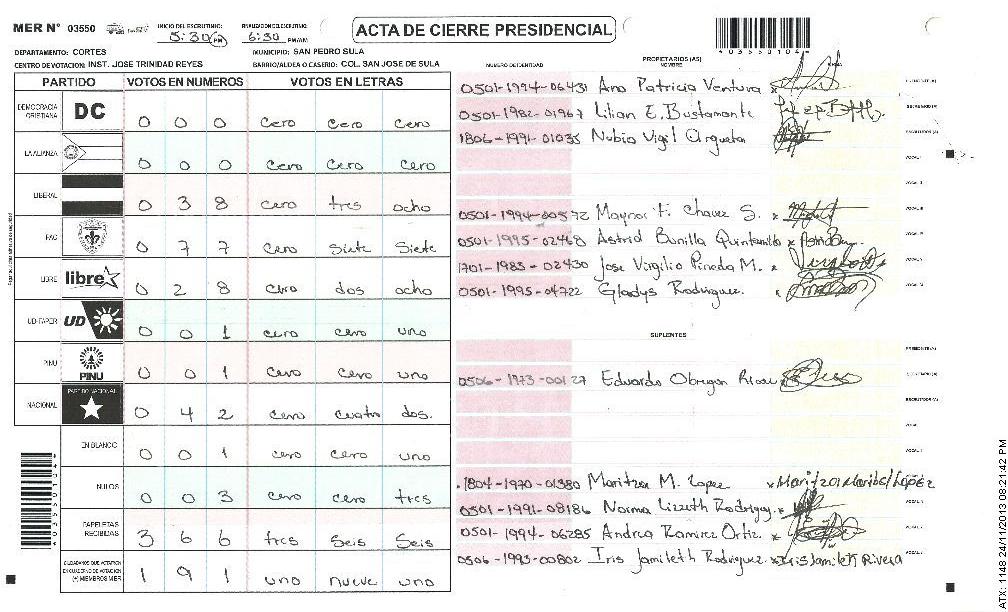 MER N° 03550 INICIO DEL ESCRUTINIO: 5:30 PM FINALIZACION ESCRUTINIO: 6:30 PM/AM ACTA DE CIERRE PRESIDENCIAL
DEPARTAMENTO: CORTES MUNICIPIO: SAN PEDRO SULA
CENTRO DE VOTACION: INST. JOSE TRINIDAD REYES BARRIO/ALDEA O CASERIO: COL. SAN JOSE DE SULA
PARTIDO VOTOS EN NUMEROS VOTOS EN LETRAS
DEMOCRACIA CRISTIANA DC 0 0 0 cero cero cero
LA ALIANZA 0 0 0 cero cero cero
LIBERAL 0 3 8 cero tres ocho
PAC 0 7 7 cero Siete Siete
LIBRE libre 0 2 8 cero dos ocho
UD-FAPER UD 0 0 1 cero cero uno
PINU PINU 0 0 1 cero cero uno
NACIONAL PARTIDO NACIONAL 0 4 2 cero cuatro dos.
EN BLANCO 0 0 1 cero cero uno
NULOS 0 0 3 cero cero tres
PAPELETAS RECIBIDAS 3 6 6 tres Seis Seis
CIUDADANOS QUE VOTARON EN CUADERNO DE VOTACION (+) MIEMBROS MER 1 9 1 uno nueve uno
403550104
PROPIETARIOS (AS)
NUMERO DE IDENTIDAD NOMBRE FIRMA
0501-1994-06431 Ana Patricia Ventura x PRESIDENTE (A)
0501-1982-01967 Lilian E. Bustamante SECRETARIO (A)
1806-1991-01035 Nubia Vigil Argueta ESCRUTADOR (A)
VOCAL I
0501-1994-00572 Maynor F. Chavez S. x
0501-1995-02468 Astrid Bonilla Quintanilla x
1701-1983-02430 Jose Virgilio Pineda M. x
0501-1995-04722 Gladys Rodriguez. x
SUPLENTES
PRESIDENTE (A)
0506-1973-00127 Eduardo Obregon x SECRETARIO (A)
ESCRUTADOR (A)
1804-1970-01380 Maritza M. Lopez x Maritza Maribel López
0501-1991-08186 Norma Lizzeth Rodriguez x
0501-1994-06285 Andrea Ramirez Ortiz. x
0506-1993-00802 Iris Jamileth Rodriguez x Iris Jamileth Rivera
ATX: 1148 24/11/2013 08:21:42 PM